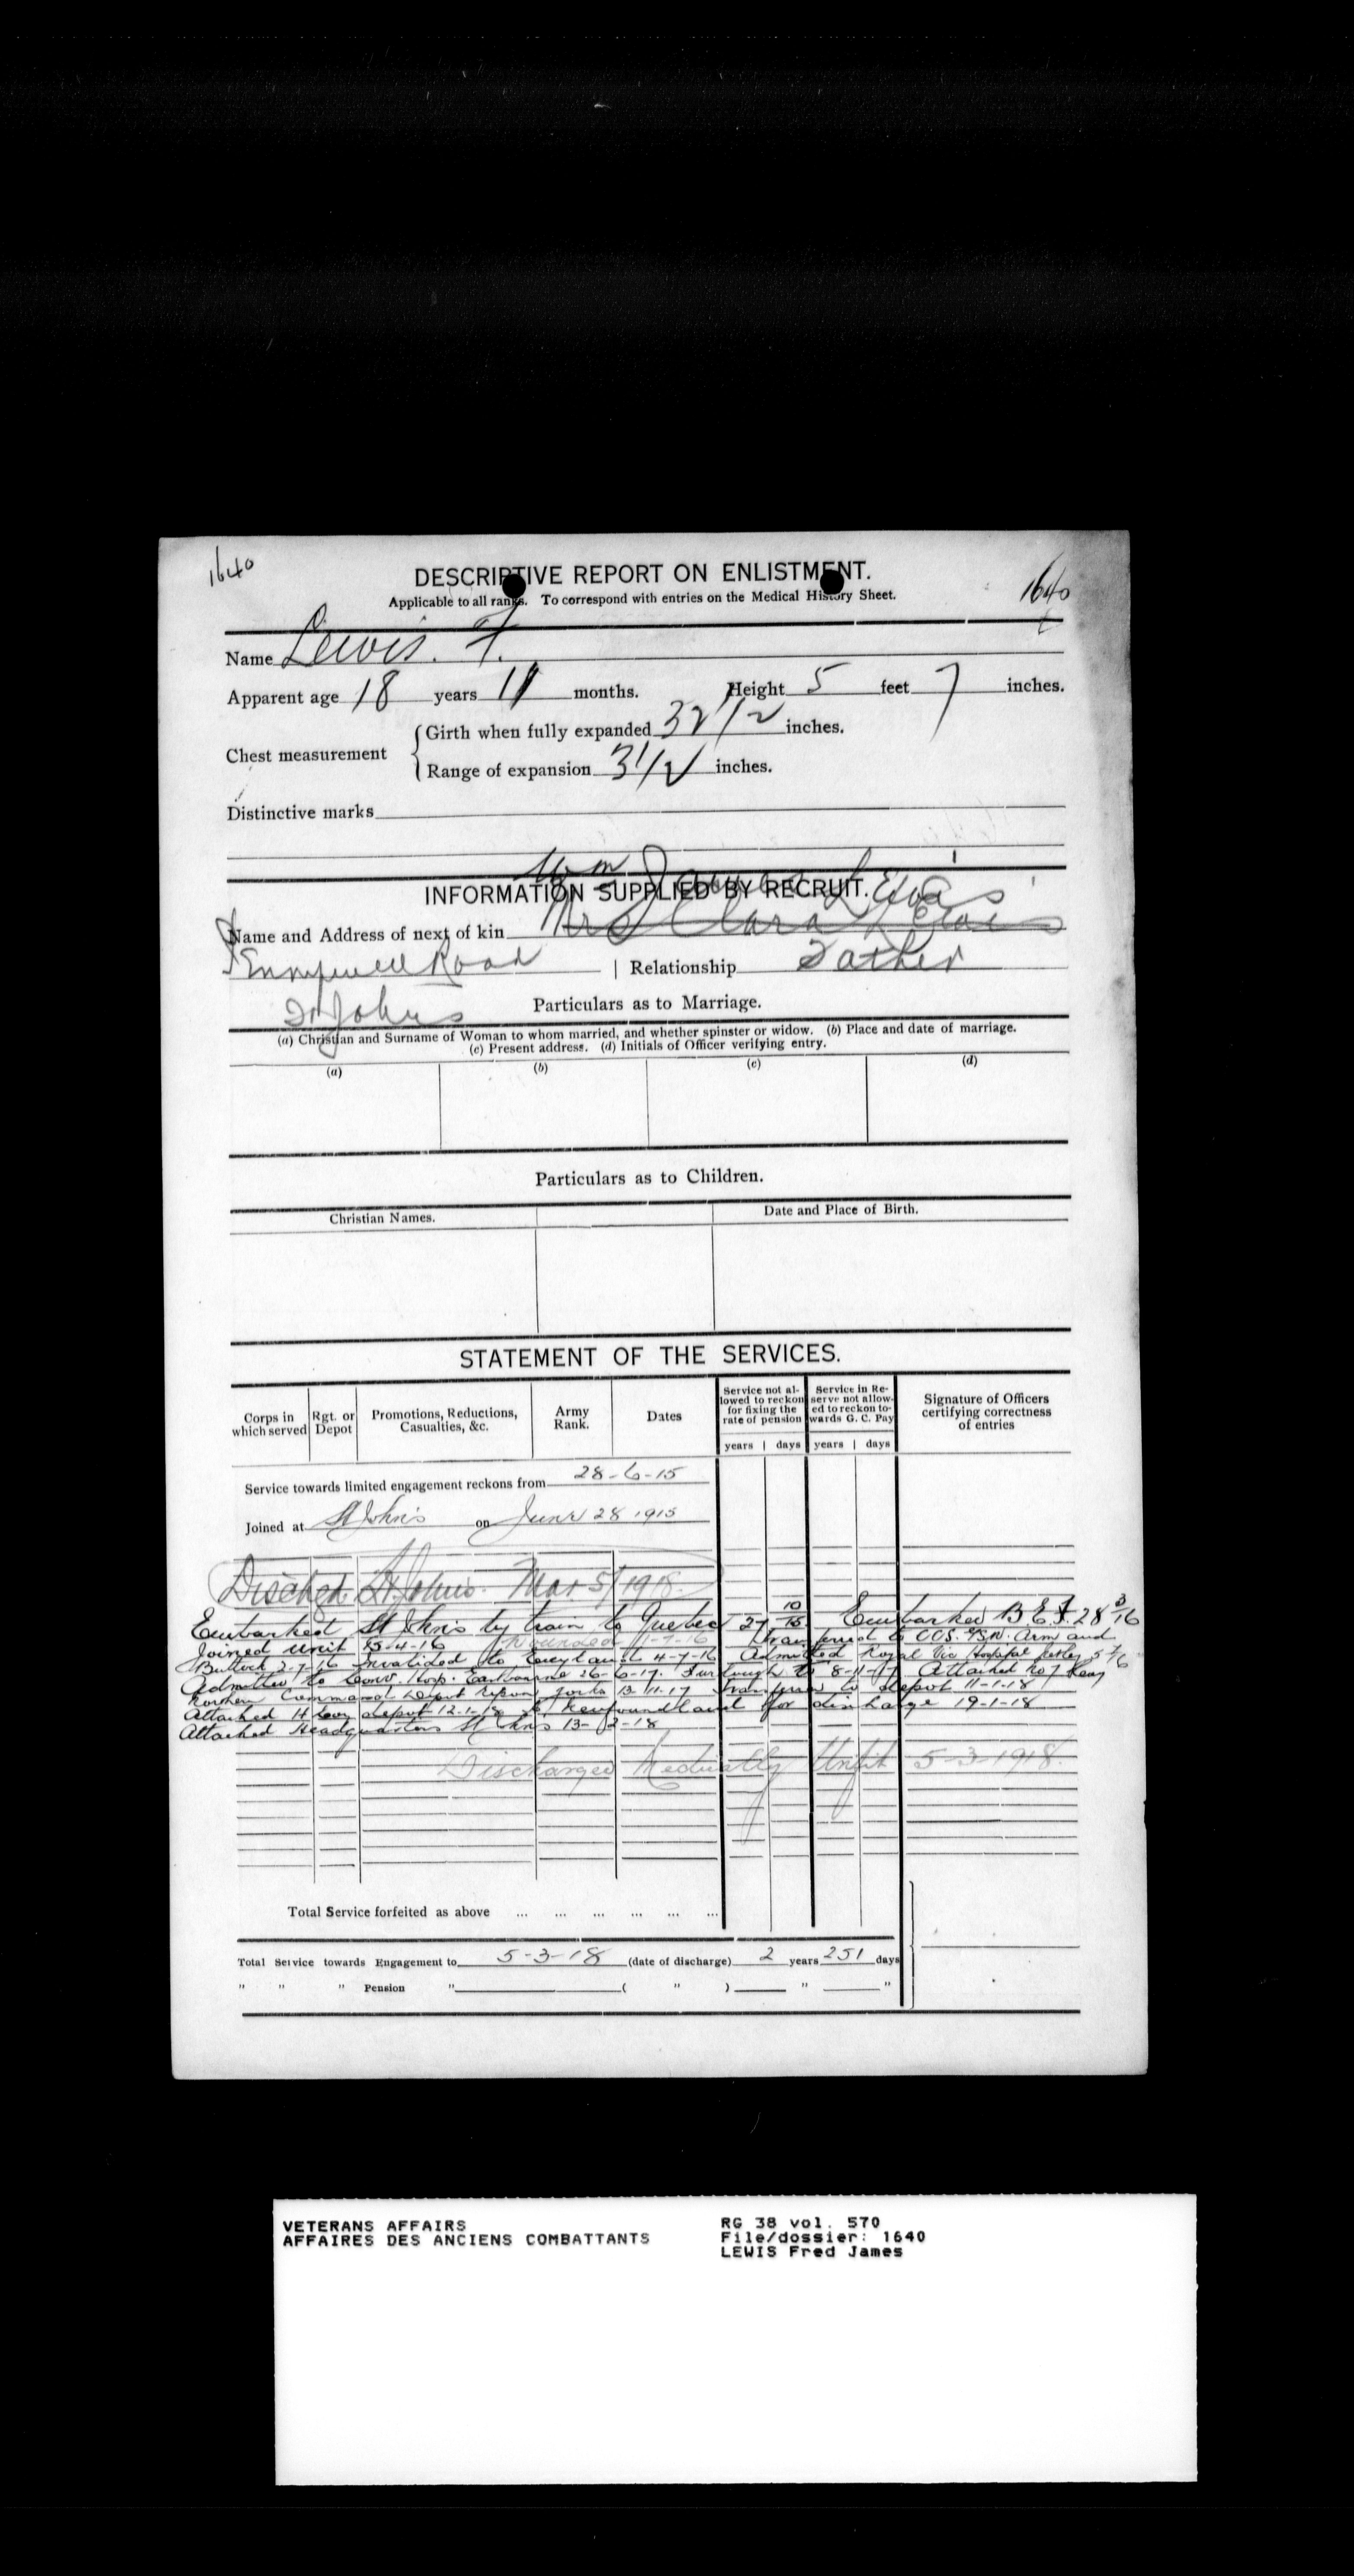 1640
1640
DESCRIPTIVE REPORT ON ENLISTMENT.
Applicable to all ranks. To correspond with entries on the Medical History Sheet.
Name Lewis. F.
Apparent age 18 years 11 months. Height 5 feet 7 inches.
Chest measurement
Girth when fully expanded 32 1/2 inches.
Range of expansion 3 1/2 inches.
Distinctive marks
Wm James Lewis
INFORMATION SUPPLIED BY RECRUIT.
Name and Address of next of kin Mrs Clara Lewis
Pennywell Road | Relationship Father
St Johns
Particulars as to Marriage.
(a) Christian and Surname of Woman to whom married, and whether spinster or widow. (b) Place and date of marriage.
(c) Present address. (d) Initials of Officer verifying entry.
(a) (b) (c) (d)
Particulars as to Children.
Christian Names. Date and Place of Birth.
STATEMENT OF THE SERVICES.
Corps in which served
Rgt. or Depot
Promotions, Reductions, Casualties, &c.
Army Rank.
Dates
Service not allowed to reckon for fixing the rate of pension
Service in Reserve not allowed to reckon towards G. C. Pay
Signature of Officers certifying correctness of entries
years | days years | days
Service towards limited engagement reckons from 28-6-15
Joined at St John's on June 28 1915
Dischgd St Johns. Mar 5/1918.
Embarked St Johns by train to Quebec 27 10/15 Embarked B.E.F. 28 3/16
Joined unit 15-4-16 Wounded 1-7-16 Transferred to CCS. Arm and
Buttock 2-7-16 Invalided to England 4-7-16 Admitted Royal Vic Hospital Netley 5 7/6
Admitted to Conv. Hosp. Eastbourne 26-6-17. Furlough to 8-11-17 Attached No 7
Northern Command Depot Ripon Yorks 13-11-17 Transferred to depot 11-1-18
Attached H depot 12-1-18 to Newfoundland for discharge 19-1-18
Attached Headquarters St Johns 13-2-18
Discharged Medically Unfit 5-3-1918.
Total Service forfeited as above ... ... ... ... ... ...
Total Service towards Engagement to 5-3-18 (date of discharge) 2 years 251 days
" " " Pension " ( " ) " "
VETERANS AFFAIRS
AFFAIRES DES ANCIENS COMBATTANTS
RG 38 vol. 570
File/dossier: 1640
LEWIS Fred James